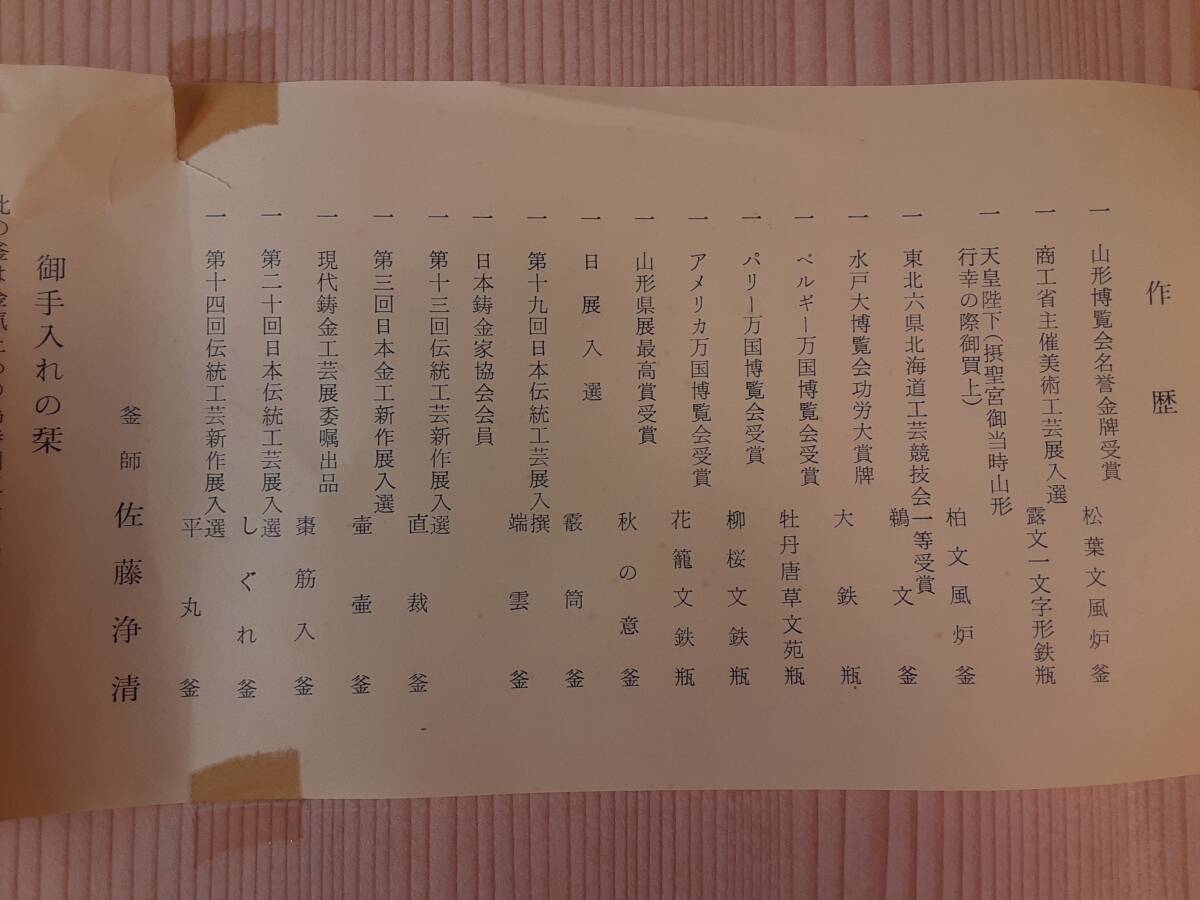 作歴
一 山形博覧会名誉金牌受賞 松葉文風炉釜
一 商工省主催美術工芸展入選 露文一文字形鉄瓶
一 天皇陛下(摂聖宮御当時山形
行幸の際御買上) 柏文風炉釜
一 東北六県北海道工芸競技会一等受賞 鵜文釜
一 水戸大博覧会功労大賞牌 大鉄瓶
一 ベルギー万国博覧会受賞 牡丹唐草文苑瓶
一 パリー万国博覧会受賞 柳桜文鉄瓶
一 アメリカ万国博覧会受賞 花籠文鉄瓶
一 山形県展最高賞受賞 秋の意釜
一 日展入選 霰筒釜
一 第十九回日本伝統工芸展入撰 端雲釜
一 日本鋳金家協会会員
一 第十三回伝統工芸新作展入選 直裁釜
一 第三回日本金工新作展入選 壷壷釜
一 現代鋳金工芸展委嘱出品 棗筋入釜
一 第二十回日本伝統工芸展入選 しぐれ釜
一 第十四回伝統工芸新作展入選 平丸釜
釜師 佐藤浄清
御手入れの栞
此の釜は